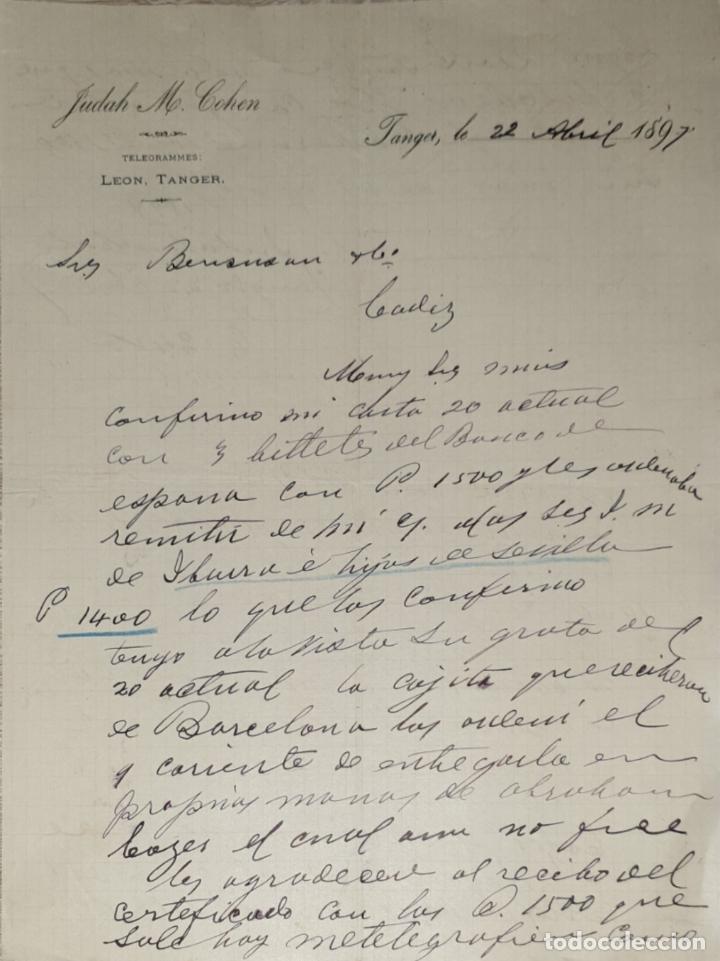 Judah M. Cohen
TELEGRAMMES:
LEON, TANGER.
Tanger, le 22 Abril 1897
Sres Bensusan & Co
Cadiz
Muy Sres mios
confirmo mi carta 20 actual
con 3 billetes del Banco de
españa con P. 1500 y les ordenaba
remitir de mi c. a los Sres J. M
de Ybarra é hijos de Sevilla
P 1400 lo que les confirmo
tengo a la vista su grata de
20 actual la cajita que recibieron
de Barcelona les ordené el
9 coriente de entregarla en
propias manos de abraham
el cual aun no fue
les agradeceré al recibo del
certeficado con las P. 1500 que
sale hoy me telegrafien
todocoleccion